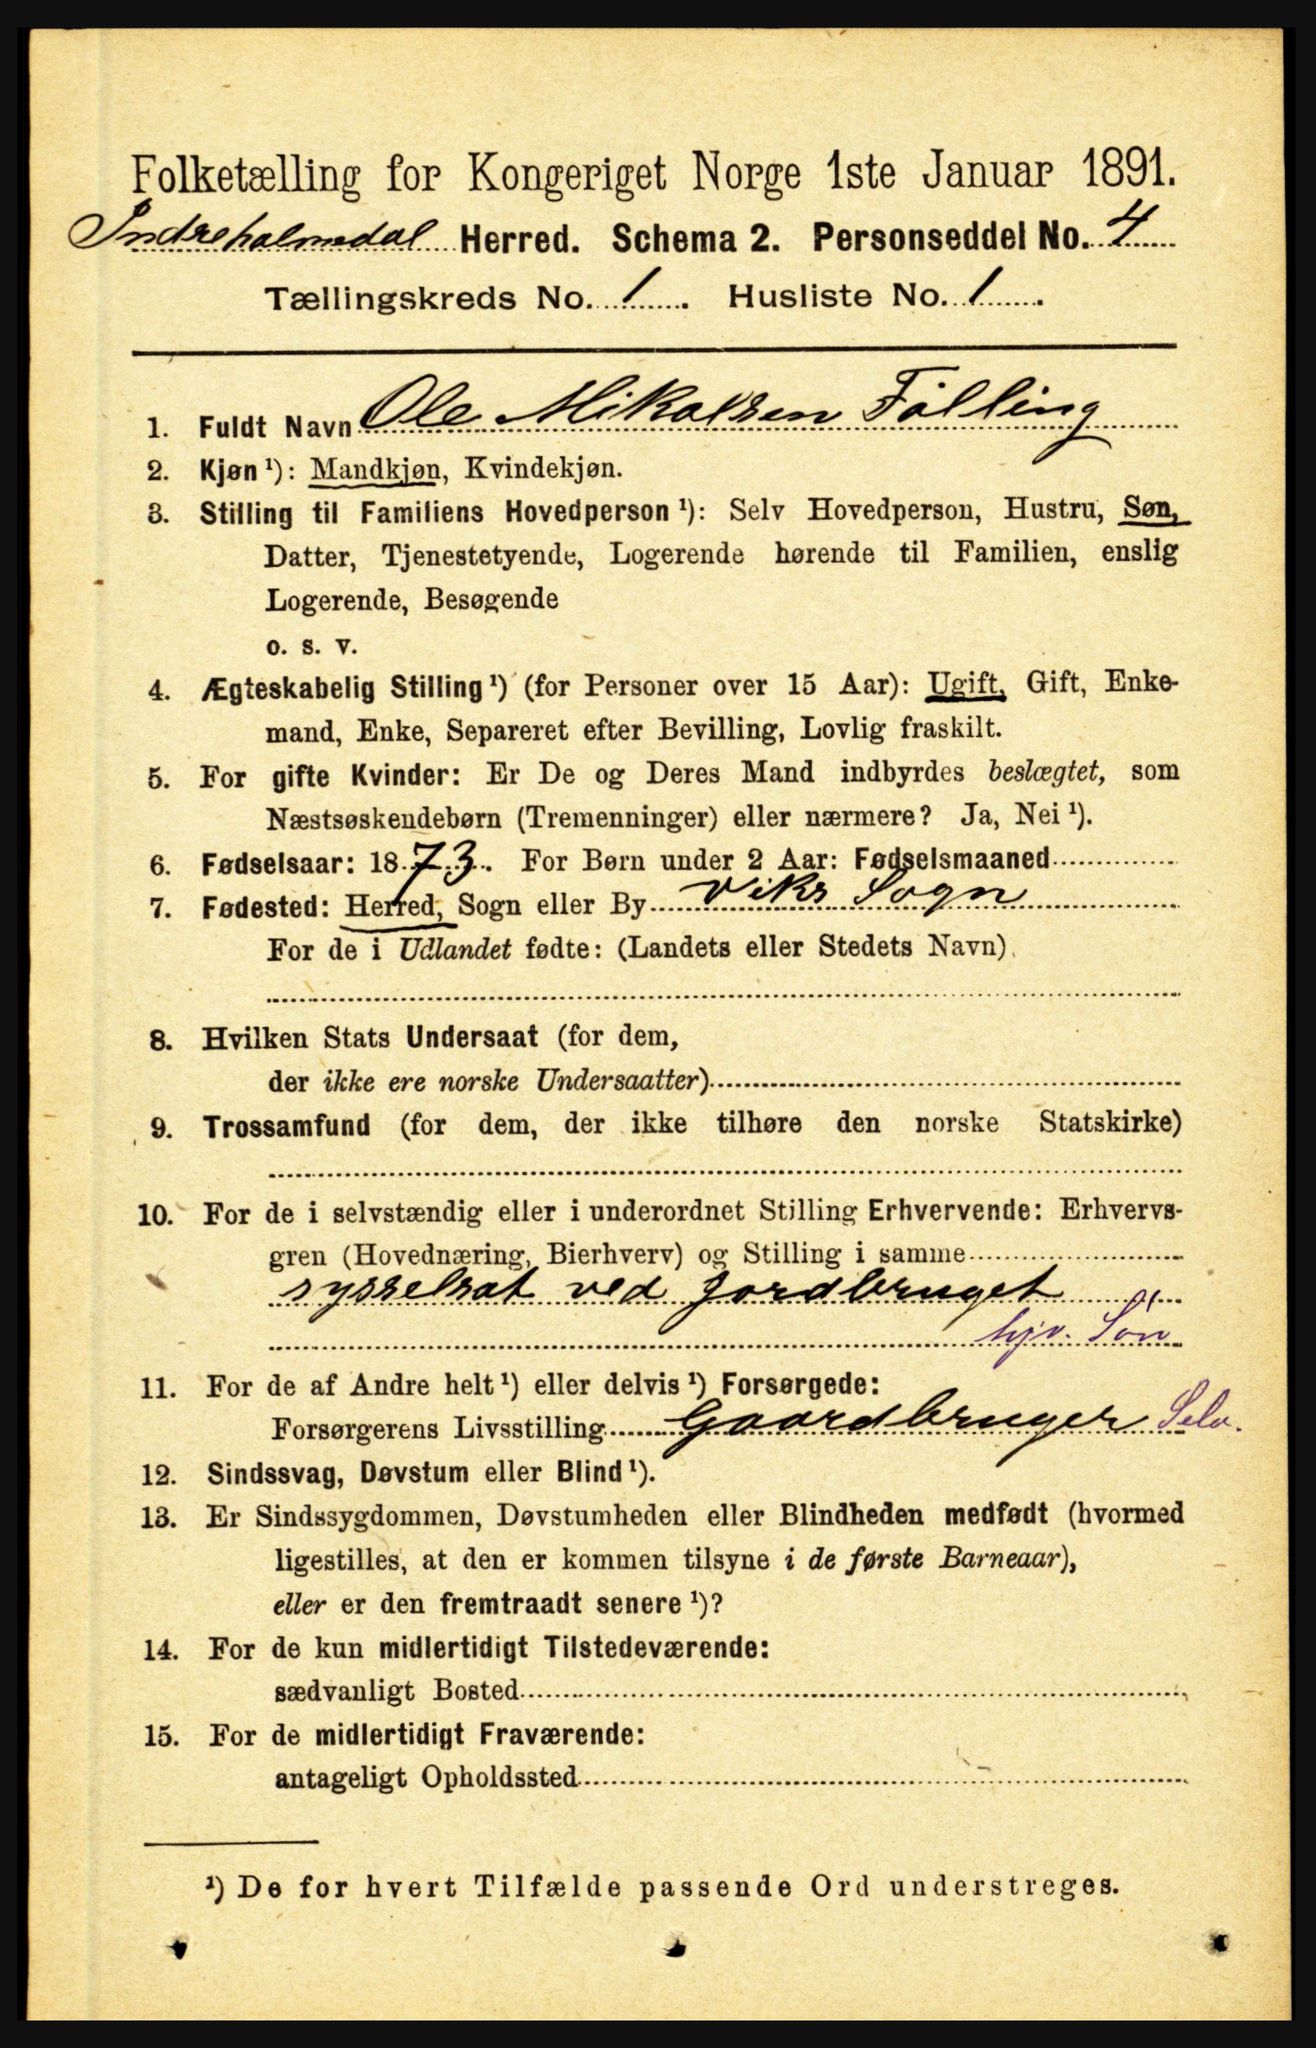 Folketælling for Kongeriget Norge 1ste Januar 1891.
Indreholmedal Herred. Schema 2. Personseddel No. 4
Tællingskreds No. 1. Husliste No. 1.
1. Fuldt Navn Ole Mikalsen Fölling
2. Kjøn ¹): Mandkjøn, Kvindekjøn.
3. Stilling til Familiens Hovedperson ¹): Selv Hovedperson, Hustru, Søn,
Datter, Tjenestetyende, Logerende hørende til Familien, enslig
Logerende, Besøgende
o. s. v.
4. Ægteskabelig Stilling ¹) (for Personer over 15 Aar): Ugift, Gift, Enke-
mand, Enke, Separeret efter Bevilling, Lovlig fraskilt.
5. For gifte Kvinder: Er De og Deres Mand indbyrdes beslægtet, som
Næstsøskendebørn (Tremenninger) eller nærmere? Ja, Nei ¹).
6. Fødselsaar: 1873. For Børn under 2 Aar: Fødselsmaaned
7. Fødested: Herred, Sogn eller By Viks Sogn
For de i Udlandet fødte: (Landets eller Stedets Navn)
8. Hvilken Stats Undersaat (for dem,
der ikke ere norske Undersaatter)
9. Trossamfund (for dem, der ikke tilhøre den norske Statskirke)
10. For de i selvstændig eller i underordnet Stilling Erhvervende: Erhvervs-
gren (Hovednæring, Bierhverv) og Stilling i samme
sysselsat ved Jordbruget
hjv. Sön
11. For de af Andre helt ¹) eller delvis ¹) Forsørgede:
Forsørgerens Livsstilling Gaardbruger Selv.
12. Sindssvag, Døvstum eller Blind ¹).
13. Er Sindssygdommen, Døvstumheden eller Blindheden medfødt (hvormed
ligestilles, at den er kommen tilsyne i de første Barneaar),
eller er den fremtraadt senere ¹)?
14. For de kun midlertidigt Tilstedeværende:
sædvanligt Bosted
15. For de midlertidigt Fraværende:
antageligt Opholdssted
¹) De for hvert Tilfælde passende Ord understreges.